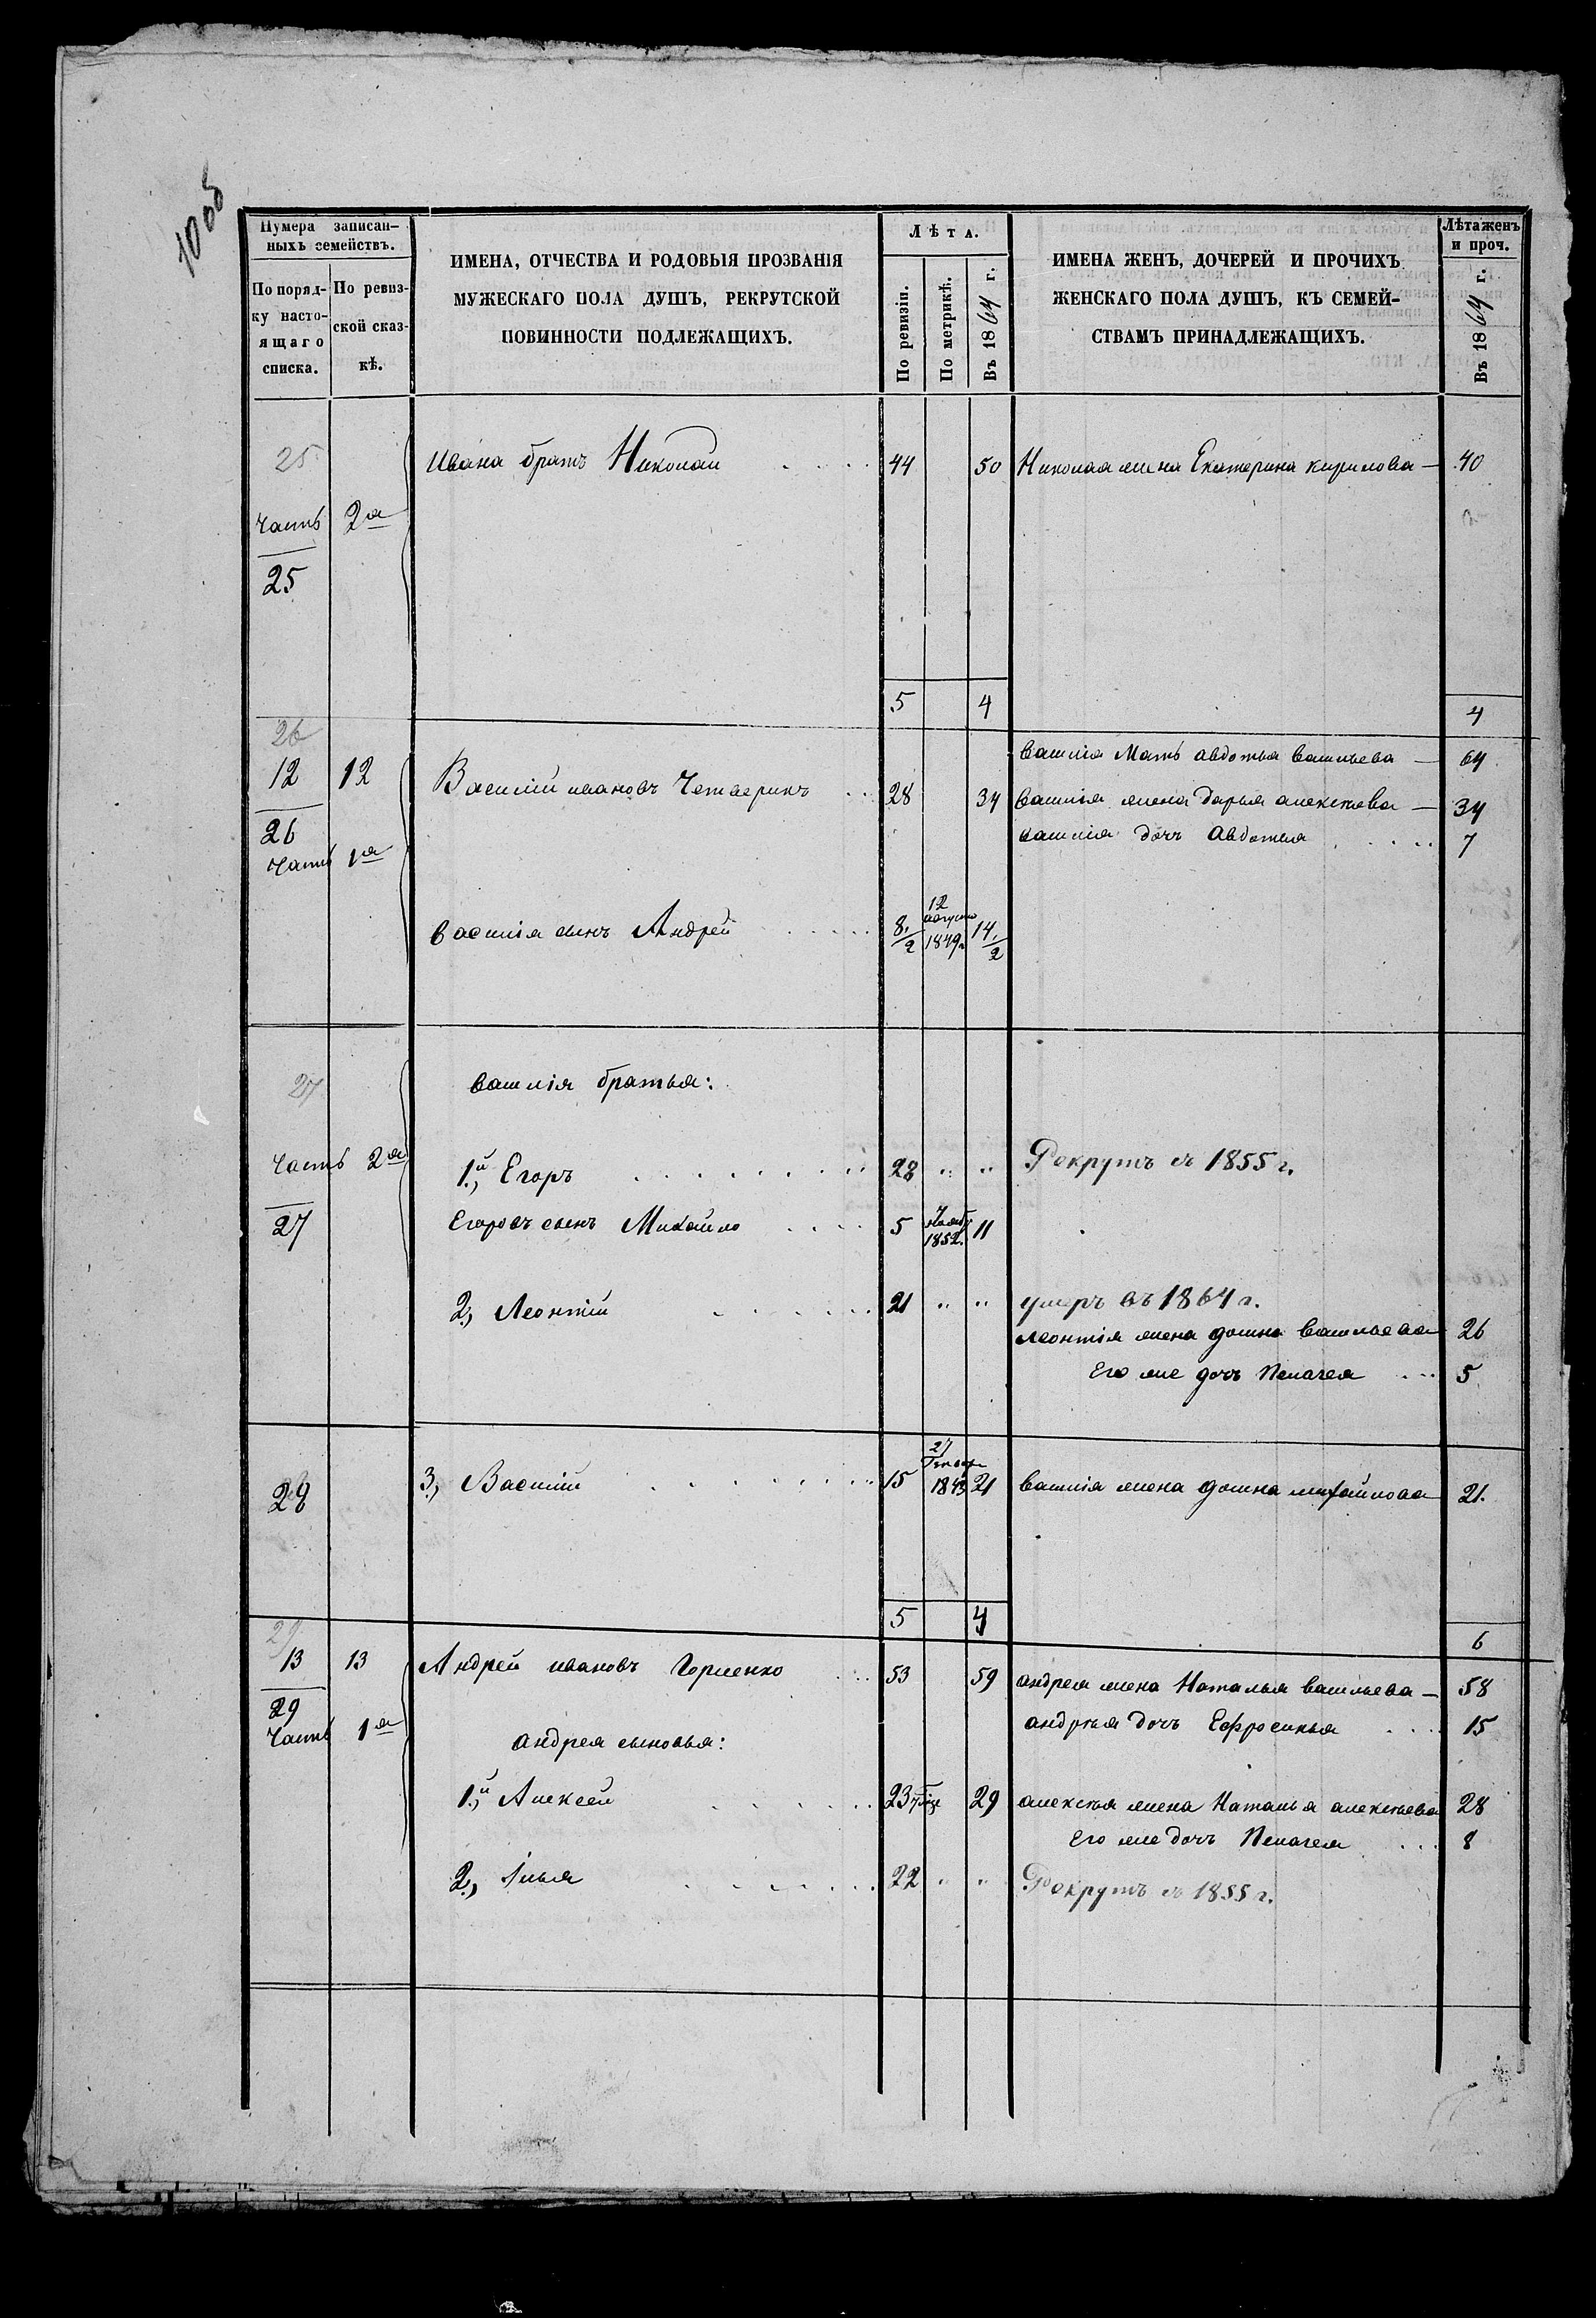 Нумера записан-
ныхъ семействъ.
По поряд-
ку насто-
ящаго
списка.
По ревиз-
ской сказ-
кѣ.
ИМЕНА, ОТЧЕСТВА И РОДОВЫЯ ПРОЗВАНІЯ
МУЖЕСКАГО ПОЛА ДУШЪ, РЕКРУТСКОЙ
ПОВИННОСТИ ПОДЛЕЖАЩИХЪ.
Лѣта.
По ревизіи.
По метрикѣ.
Въ 1864 г.
ИМЕНА ЖЕНЪ, ДОЧЕРЕЙ И ПРОЧИХЪ
ЖЕНСКАГО ПОЛА ДУШЪ, КЪ СЕМЕЙ-
СТВАМЪ ПРИНАДЛЕЖАЩИХЪ.
Лѣта женъ
и проч.
Въ 1864 г.
25 Ивана братъ Николай 44 50 Николая жена Екатерина Кирилова — 40
Часть 2я
25
5 4 4
26
Василія Мать Авдотья Васильева — 64
12 12 Василій Ивановъ Четверикъ 28 34 Василія жена Дарья Алексѣева — 34
26 Василія дочь Авдотья 7
Часть 1я
Василія сынъ Андрей 8 1/2 12 августа 1849 г. 14 1/2
27 Василія братья:
Часть 2я 1й, Егоръ 28 " " Рекрутъ съ 1855 г.
27 Егоровъ сынъ Михайло 5 1852. 11
2, Леонтій 21 " " умеръ въ 1864 г.
Леонтія жена Домна Васильева 26
Его же дочь Пелагея 5
28 3, Василій 15 27 Генваря 1843 21 Василія жена Домна Михайлова 21.
5 4 6
29
13 13 Андрей Ивановъ Горленко 53 59 Андрея жена Наталья Васильева — 58
29 Андрѣя дочь Ефросинья 15
Часть 1я Андрея сыновья:
1й, Алексей 23 29 Алексѣя жена Наталья Алексѣева 28
Его же дочь Пелагея 8
2, Илья 22 " " Рекрутъ съ 1855 г.